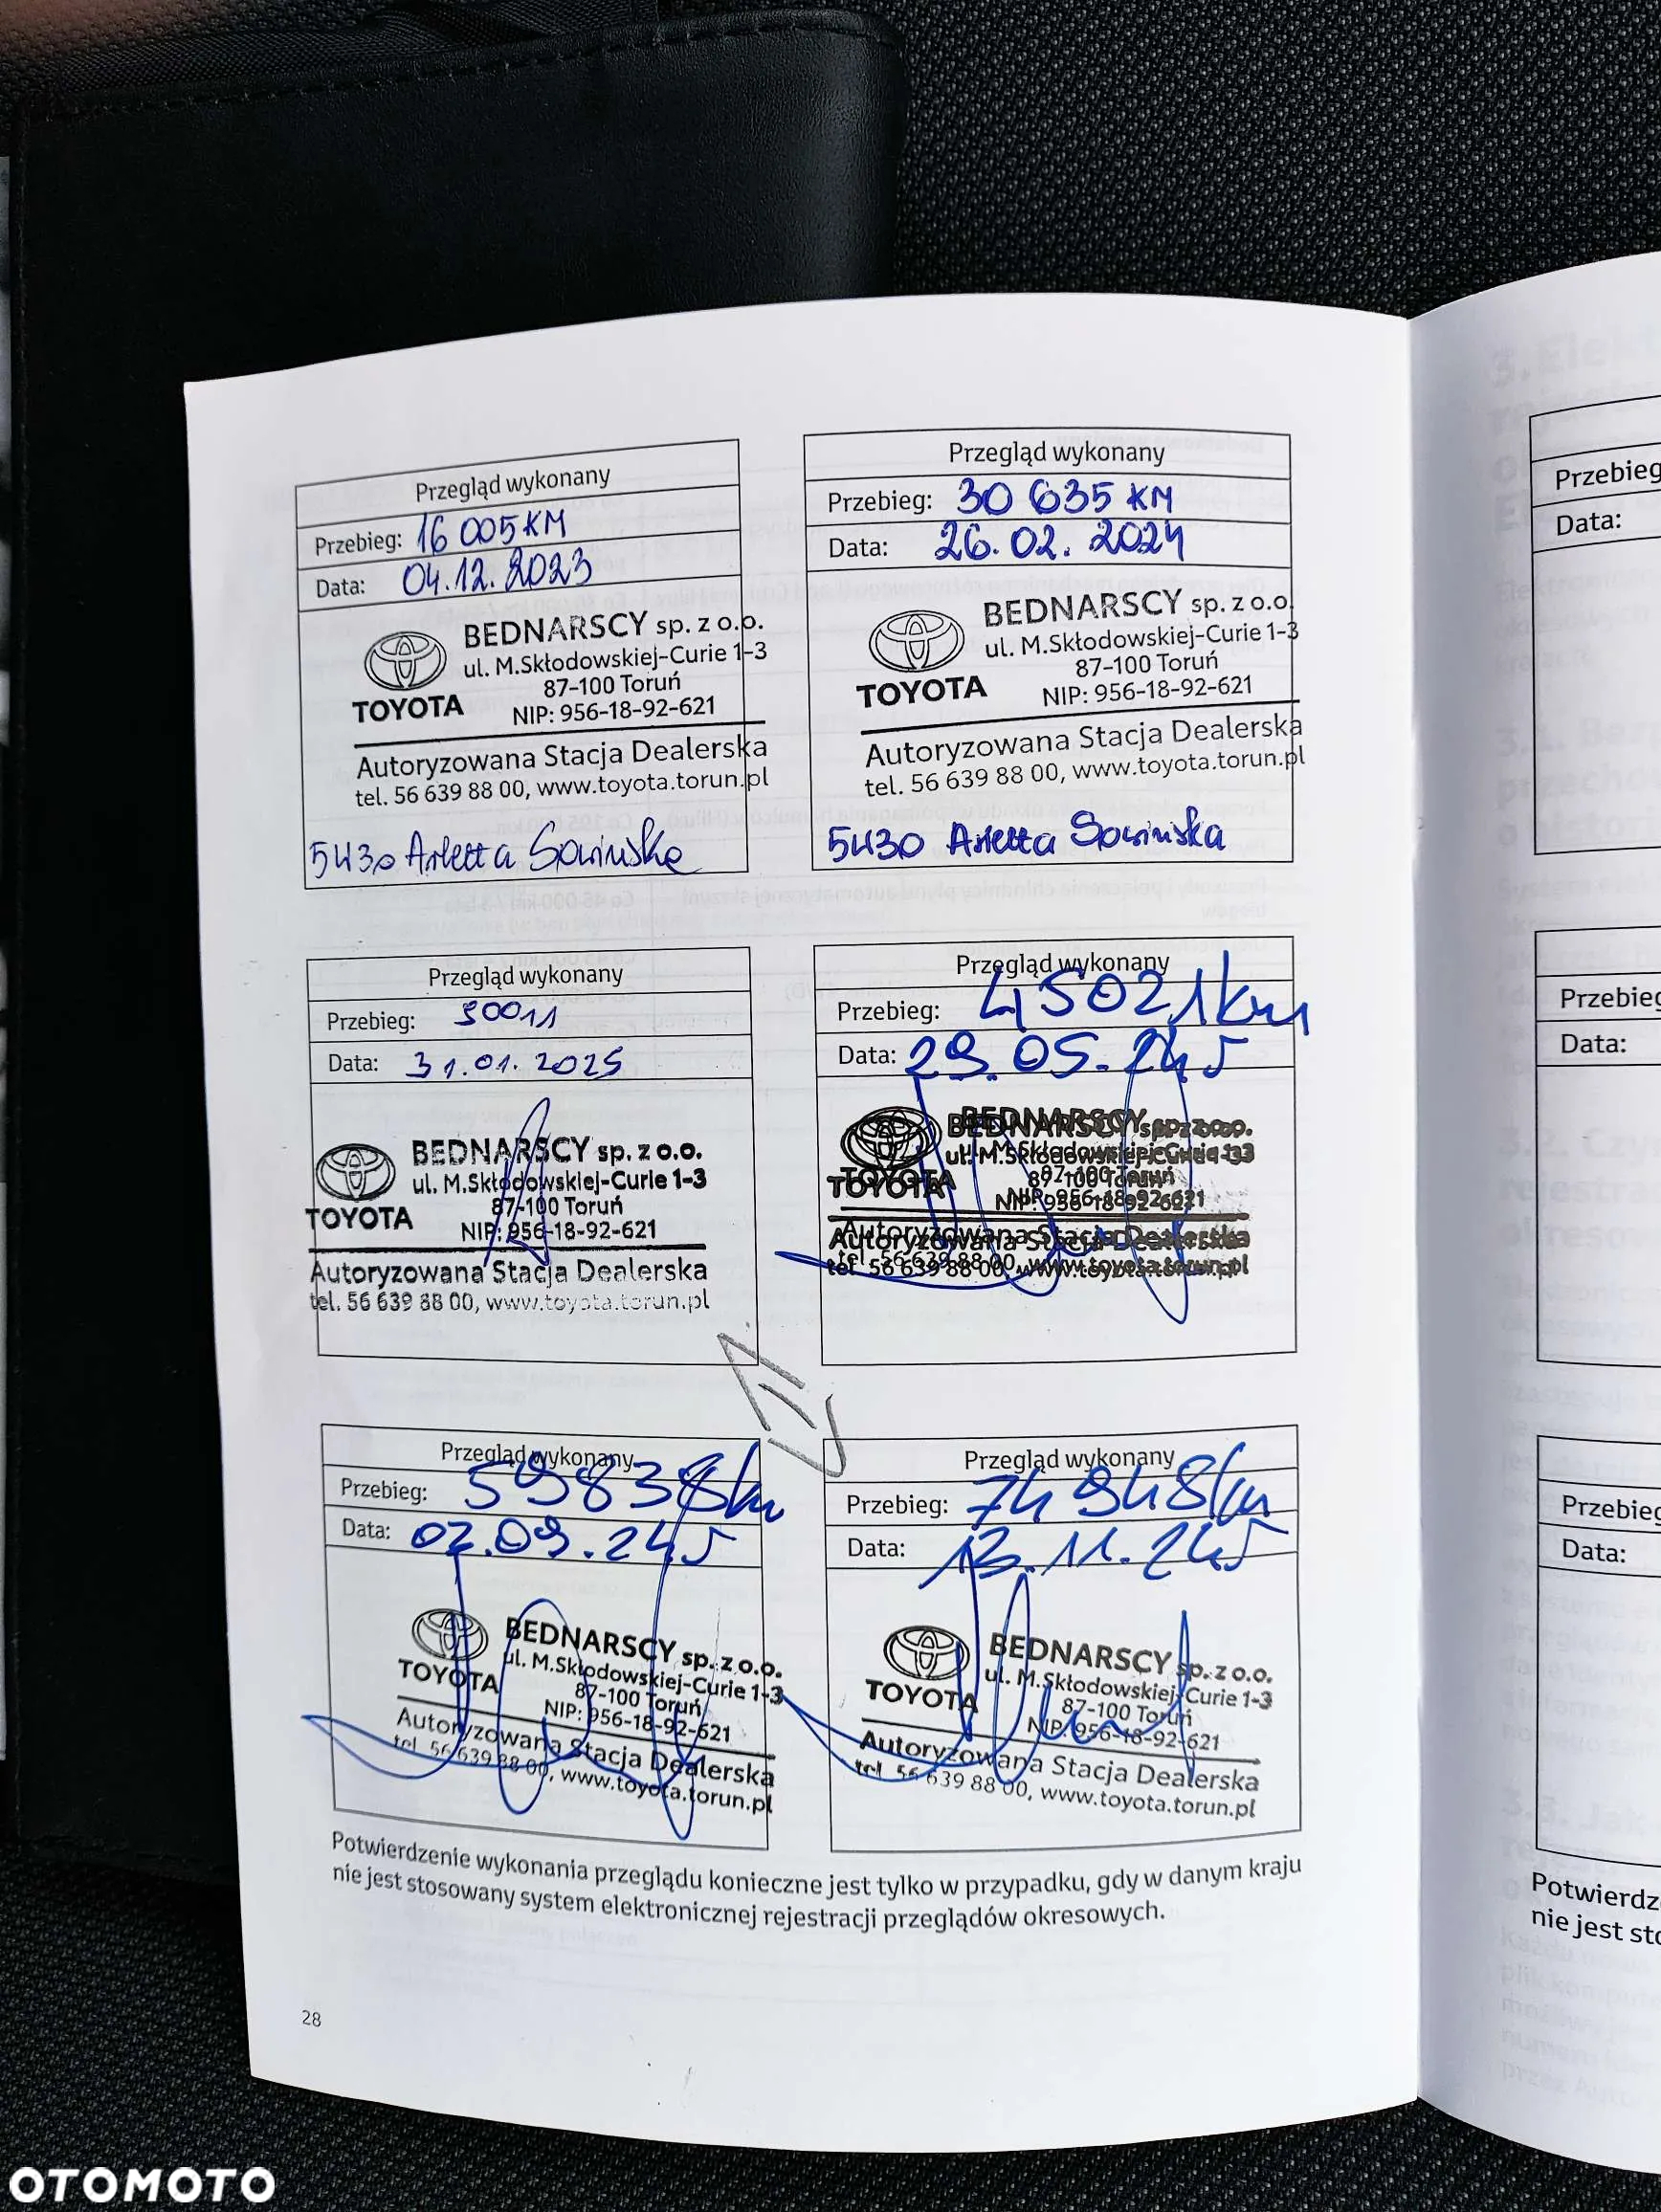 Przegląd wykonany
Przebieg: 16 005 KM
Data: 04.12.2023
BEDNARSCY sp. z o.o.
ul. M.Skłodowskiej-Curie 1-3
87-100 Toruń
TOYOTA NIP: 956-18-92-621
Autoryzowana Stacja Dealerska
tel. 56 639 88 00, www.toyota.torun.pl
5430 Arletta Sowińska
Przegląd wykonany
Przebieg: 30 635 KM
Data: 26.02.2024
BEDNARSCY sp. z o.o.
ul. M.Skłodowskiej-Curie 1-3
87-100 Toruń
TOYOTA NIP: 956-18-92-621
Autoryzowana Stacja Dealerska
tel. 56 639 88 00, www.toyota.torun.pl
5430 Arletta Sowińska
Przegląd wykonany
Przebieg: 30011
Data: 31.01.2025
BEDNARSCY sp. z o.o.
ul. M.Skłodowskiej-Curie 1-3
87-100 Toruń
TOYOTA NIP: 956-18-92-621
Autoryzowana Stacja Dealerska
tel. 56 639 88 00, www.toyota.torun.pl
Przegląd wykonany
Przebieg: 45021km
Data: 29.05.24r
BEDNARSCY sp. z o.o.
ul. M.Skłodowskiej-Curie 1-3
87-100 Toruń
TOYOTA NIP: 956-18-92-621
Autoryzowana Stacja Dealerska
tel. 56 639 88 00, www.toyota.torun.pl
Przegląd wykonany
Przebieg: 59838km
Data: 02.09.24r
BEDNARSCY sp. z o.o.
ul. M.Skłodowskiej-Curie 1-3
87-100 Toruń
TOYOTA NIP: 956-18-92-621
Autoryzowana Stacja Dealerska
tel. 56 639 88 00, www.toyota.torun.pl
Przegląd wykonany
Przebieg: 74948km
Data: 13.11.24r
BEDNARSCY sp. z o.o.
ul. M.Skłodowskiej-Curie 1-3
87-100 Toruń
TOYOTA NIP: 956-18-92-621
Autoryzowana Stacja Dealerska
tel. 56 639 88 00, www.toyota.torun.pl
Potwierdzenie wykonania przeglądu konieczne jest tylko w przypadku, gdy w danym kraju
nie jest stosowany system elektronicznej rejestracji przeglądów okresowych.
28
Przebieg
Data:
Przebieg
Data:
Przebieg
Data:
Potwierdz
nie jest sto
OTOMOTO